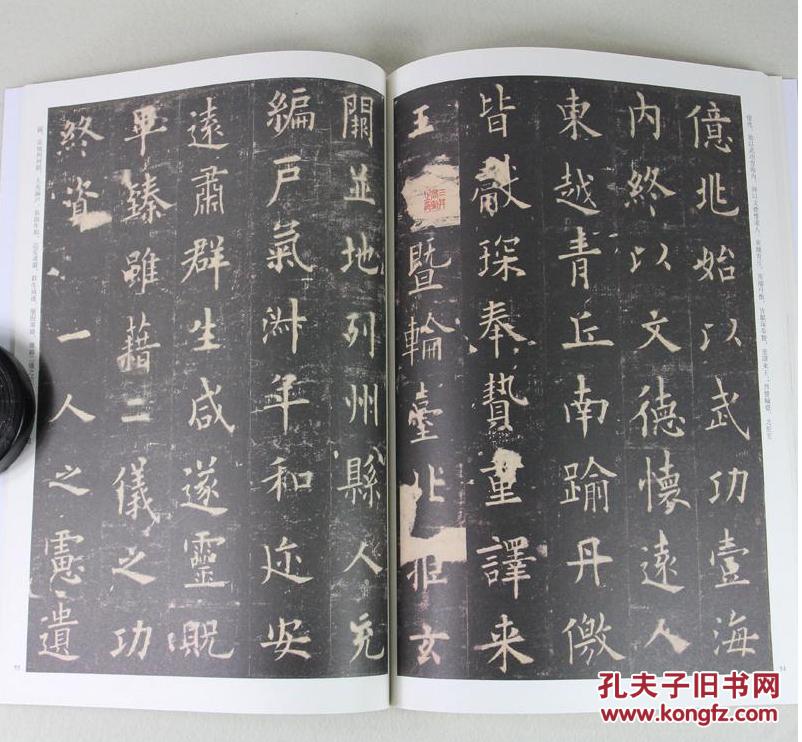 億兆始以武功壹海
内終以文德懷遠人
東越青丘南踰丹儌
皆獻琛奉贄重譯来
王暨輪臺北拒玄
闕並地列州縣人充
編戶氣淑年和迩安
遠肅群生咸遂靈貺
畢臻雖藉二儀之功
終資一人之慮遺
孔夫子旧书网
www.kongfz.com